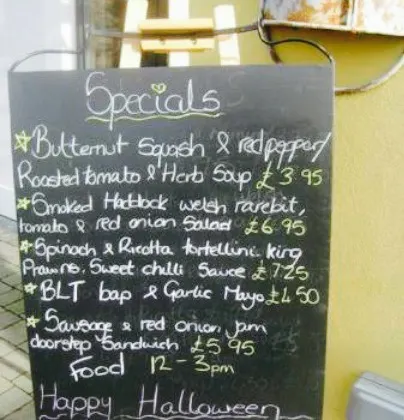 Specials
Butternut Squash & red pepper/
Roasted tomato & Herb Soup £3.95
Smoked Haddock welsh rarebit,
tomato & red onion Salad £6.95
Spinach & Ricotta tortellini king
Prawns, Sweet chilli Sauce £7.25
BLT bap & Garlic Mayo £4.50
Sausage & red onion jam
doorstep Sandwich £5.95
Food 12-3pm
Happy Halloween